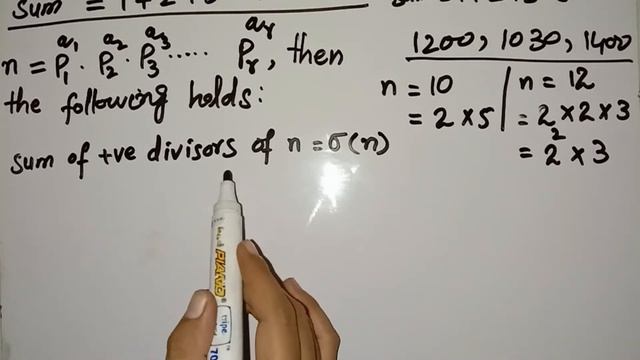 sum =
n = p₁^a₁ · p₂^a₂ · p₃^a₃ ..... pᵣ^aᵣ, then
the following holds:
sum of +ve divisors of n = σ(n)
1200, 1030, 1400
n = 10
= 2 × 5
n = 12
= 2 × 2 × 3
= 2² × 3
PIANO